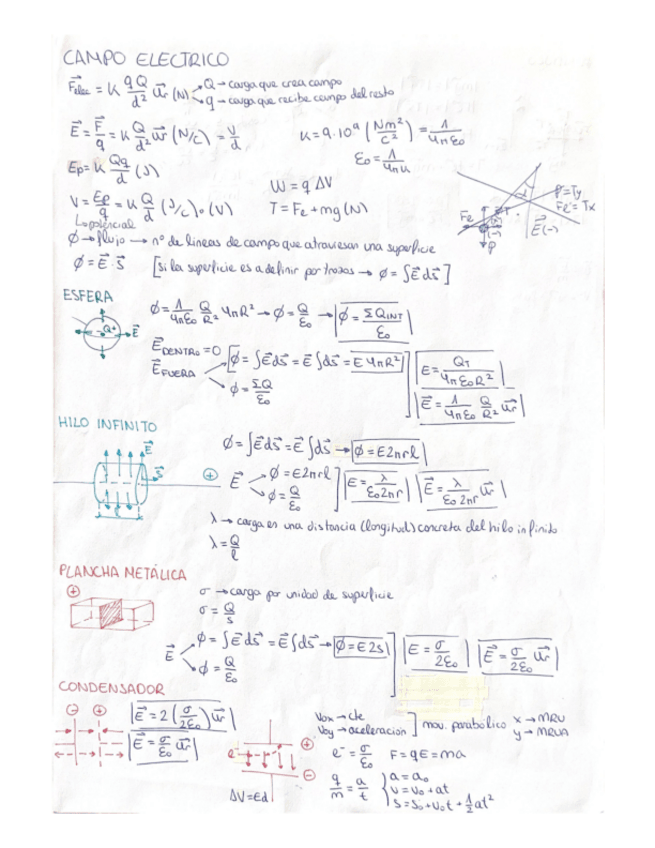 CAMPO ELECTRICO
F⃗elec = K qQ/d² u⃗r (N) → Q → carga que crea campo
→ q → carga que recibe campo del resto
E⃗ = F⃗/q = K Q/d² u⃗r (N/C) = V/d
K = 9·10⁹ (Nm²/C²) = 1/4πε0
Ep = K Qq/d (J)
ε0 = 1/4πK
W = q ΔV
V = Ep/q = K Q/d (J/C) o (V)
T = Fe + mg (N)
↳ potencial
α
P = Ty
Fe = Tx
Fe
T
(-)
E⃗ (-)
P
ϕ → flujo → nº de lineas de campo que atraviesan una superficie
ϕ = E⃗ · S⃗ [si la superficie es a definir por trozos → ϕ = ∫E⃗ ds⃗]
ESFERA
ϕ = 1/4πε0 Q/R² 4πR² → ϕ = Q/ε0 → ϕ = ΣQINT/ε0
Q+ E⃗
E⃗DENTRO = 0
E⃗FUERA
ϕ = ∫E⃗ds⃗ = E⃗ ∫ds⃗ = E4πR²
ϕ = ΣQ/ε0
E = QT/4πε0R²
E⃗ = 1/4πε0 Q/R² u⃗r
HILO INFINITO
ϕ = ∫E⃗ds⃗ = E⃗ ∫ds⃗ → ϕ = E2πrl
E⃗
S⃗
+
E⃗ → ϕ = E2πrl
→ ϕ = Q/ε0
E = λ/ε0 2πr
E⃗ = λ/ε0 2πr u⃗r
λ → carga en una distancia (longitud) concreta del hilo infinito
λ = Q/l
PLANCHA METÁLICA
+
σ → carga por unidad de superficie
σ = Q/s
E⃗ → ϕ = ∫E⃗ds⃗ = E⃗ ∫ds⃗ → ϕ = E2s
→ ϕ = Q/ε0
E = σ/2ε0
E⃗ = σ/2ε0 u⃗r
CONDENSADOR
- +
E⃗ = 2 (σ/2ε0) u⃗r
E⃗ = σ/ε0 u⃗r
e⁻
+
-
ΔV = Ed
Vox → cte
Voy → aceleración
] mov. parabólico x → MRU
y → MRUA
e⁻ = σ/ε0 F = qE = ma
q/m = a/t
a = a0
v = v0 + at
s = s0 + v0t + 1/2 at²